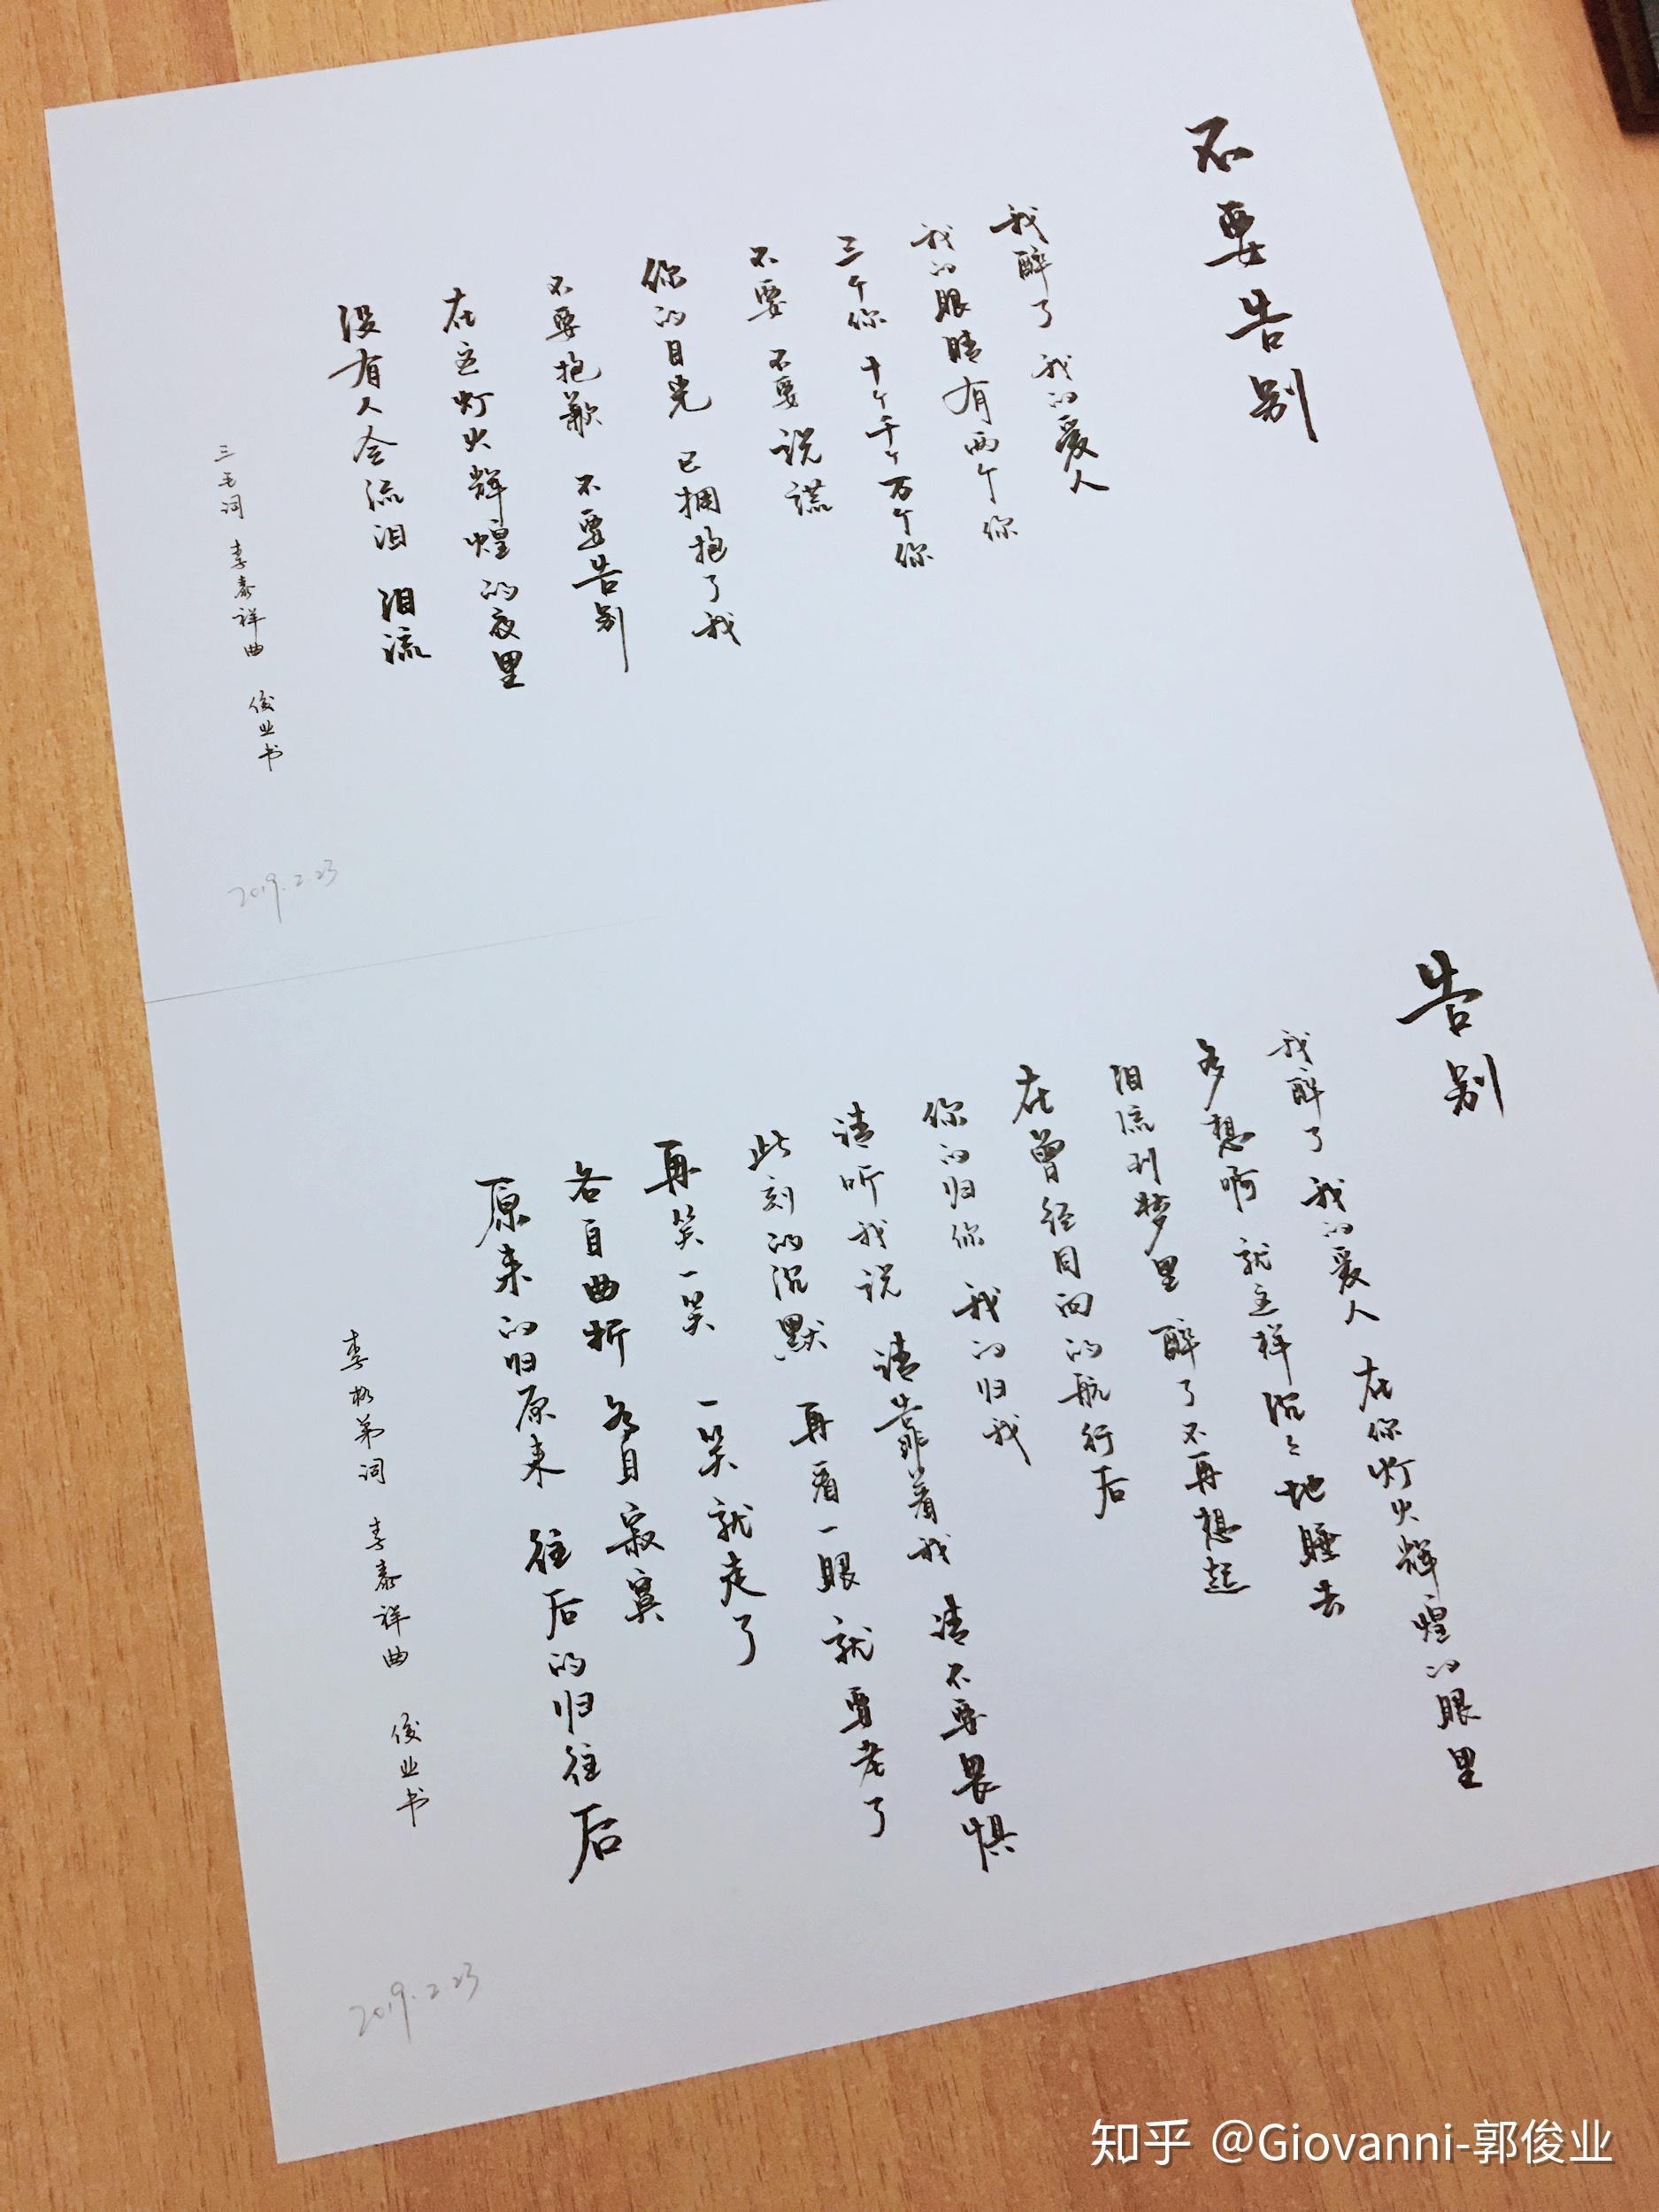 不要告别
我醉了 我的爱人
我的眼睛有两个你
三个你 十个千个万个你
不要 不要说谎
你的目光 已拥抱了我
不要抱歉 不要告别
在这灯火辉煌的夜里
没有人会流泪 泪流
三毛词 李泰祥曲 俊业书
2019.2.23
告别
我醉了 我的爱人 在你灯火辉煌的眼里
多想啊 就这样沉沉地睡去
泪流到梦里 醉了不再想起
在曾经同向的航行后
你的归你 我的归我
请听我说 请靠着我 请不要畏惧
此刻的沉默 再看一眼 就要老了
再笑一笑 一笑就走了
各自曲折 各自寂寞
原来的归原来 往后的归往后
李格弟词 李泰祥曲 俊业书
2019.2.23
知乎 @Giovanni-郭俊业